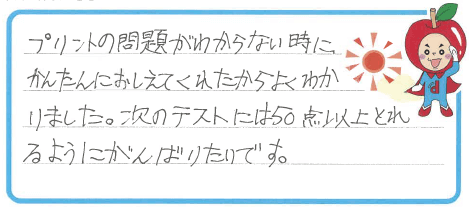 プリントの問題がわからない時に、
かんたんにおしえてくれたからよくわか
りました。次のテストには50点以上とれ
るようにがんばりたいです。
d